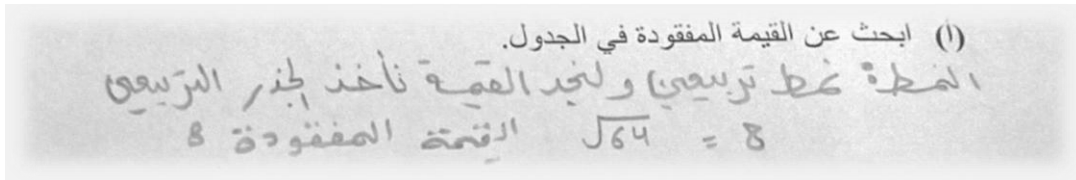 (١) ابحث عن القيمة المفقودة في الجدول.
النمط: نمط تربيعي ولنجد القيمة نأخذ الجذر التربيعي
√64 = 8 القيمة المفقودة 8